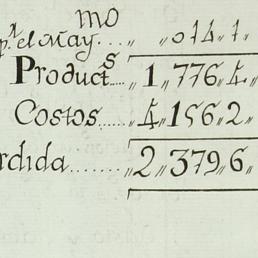 mo
pr. el May.... „ „014„1„
Products.... „1„776„4„
Costos....... „4„156„2„
rdida........ „2„379„6„